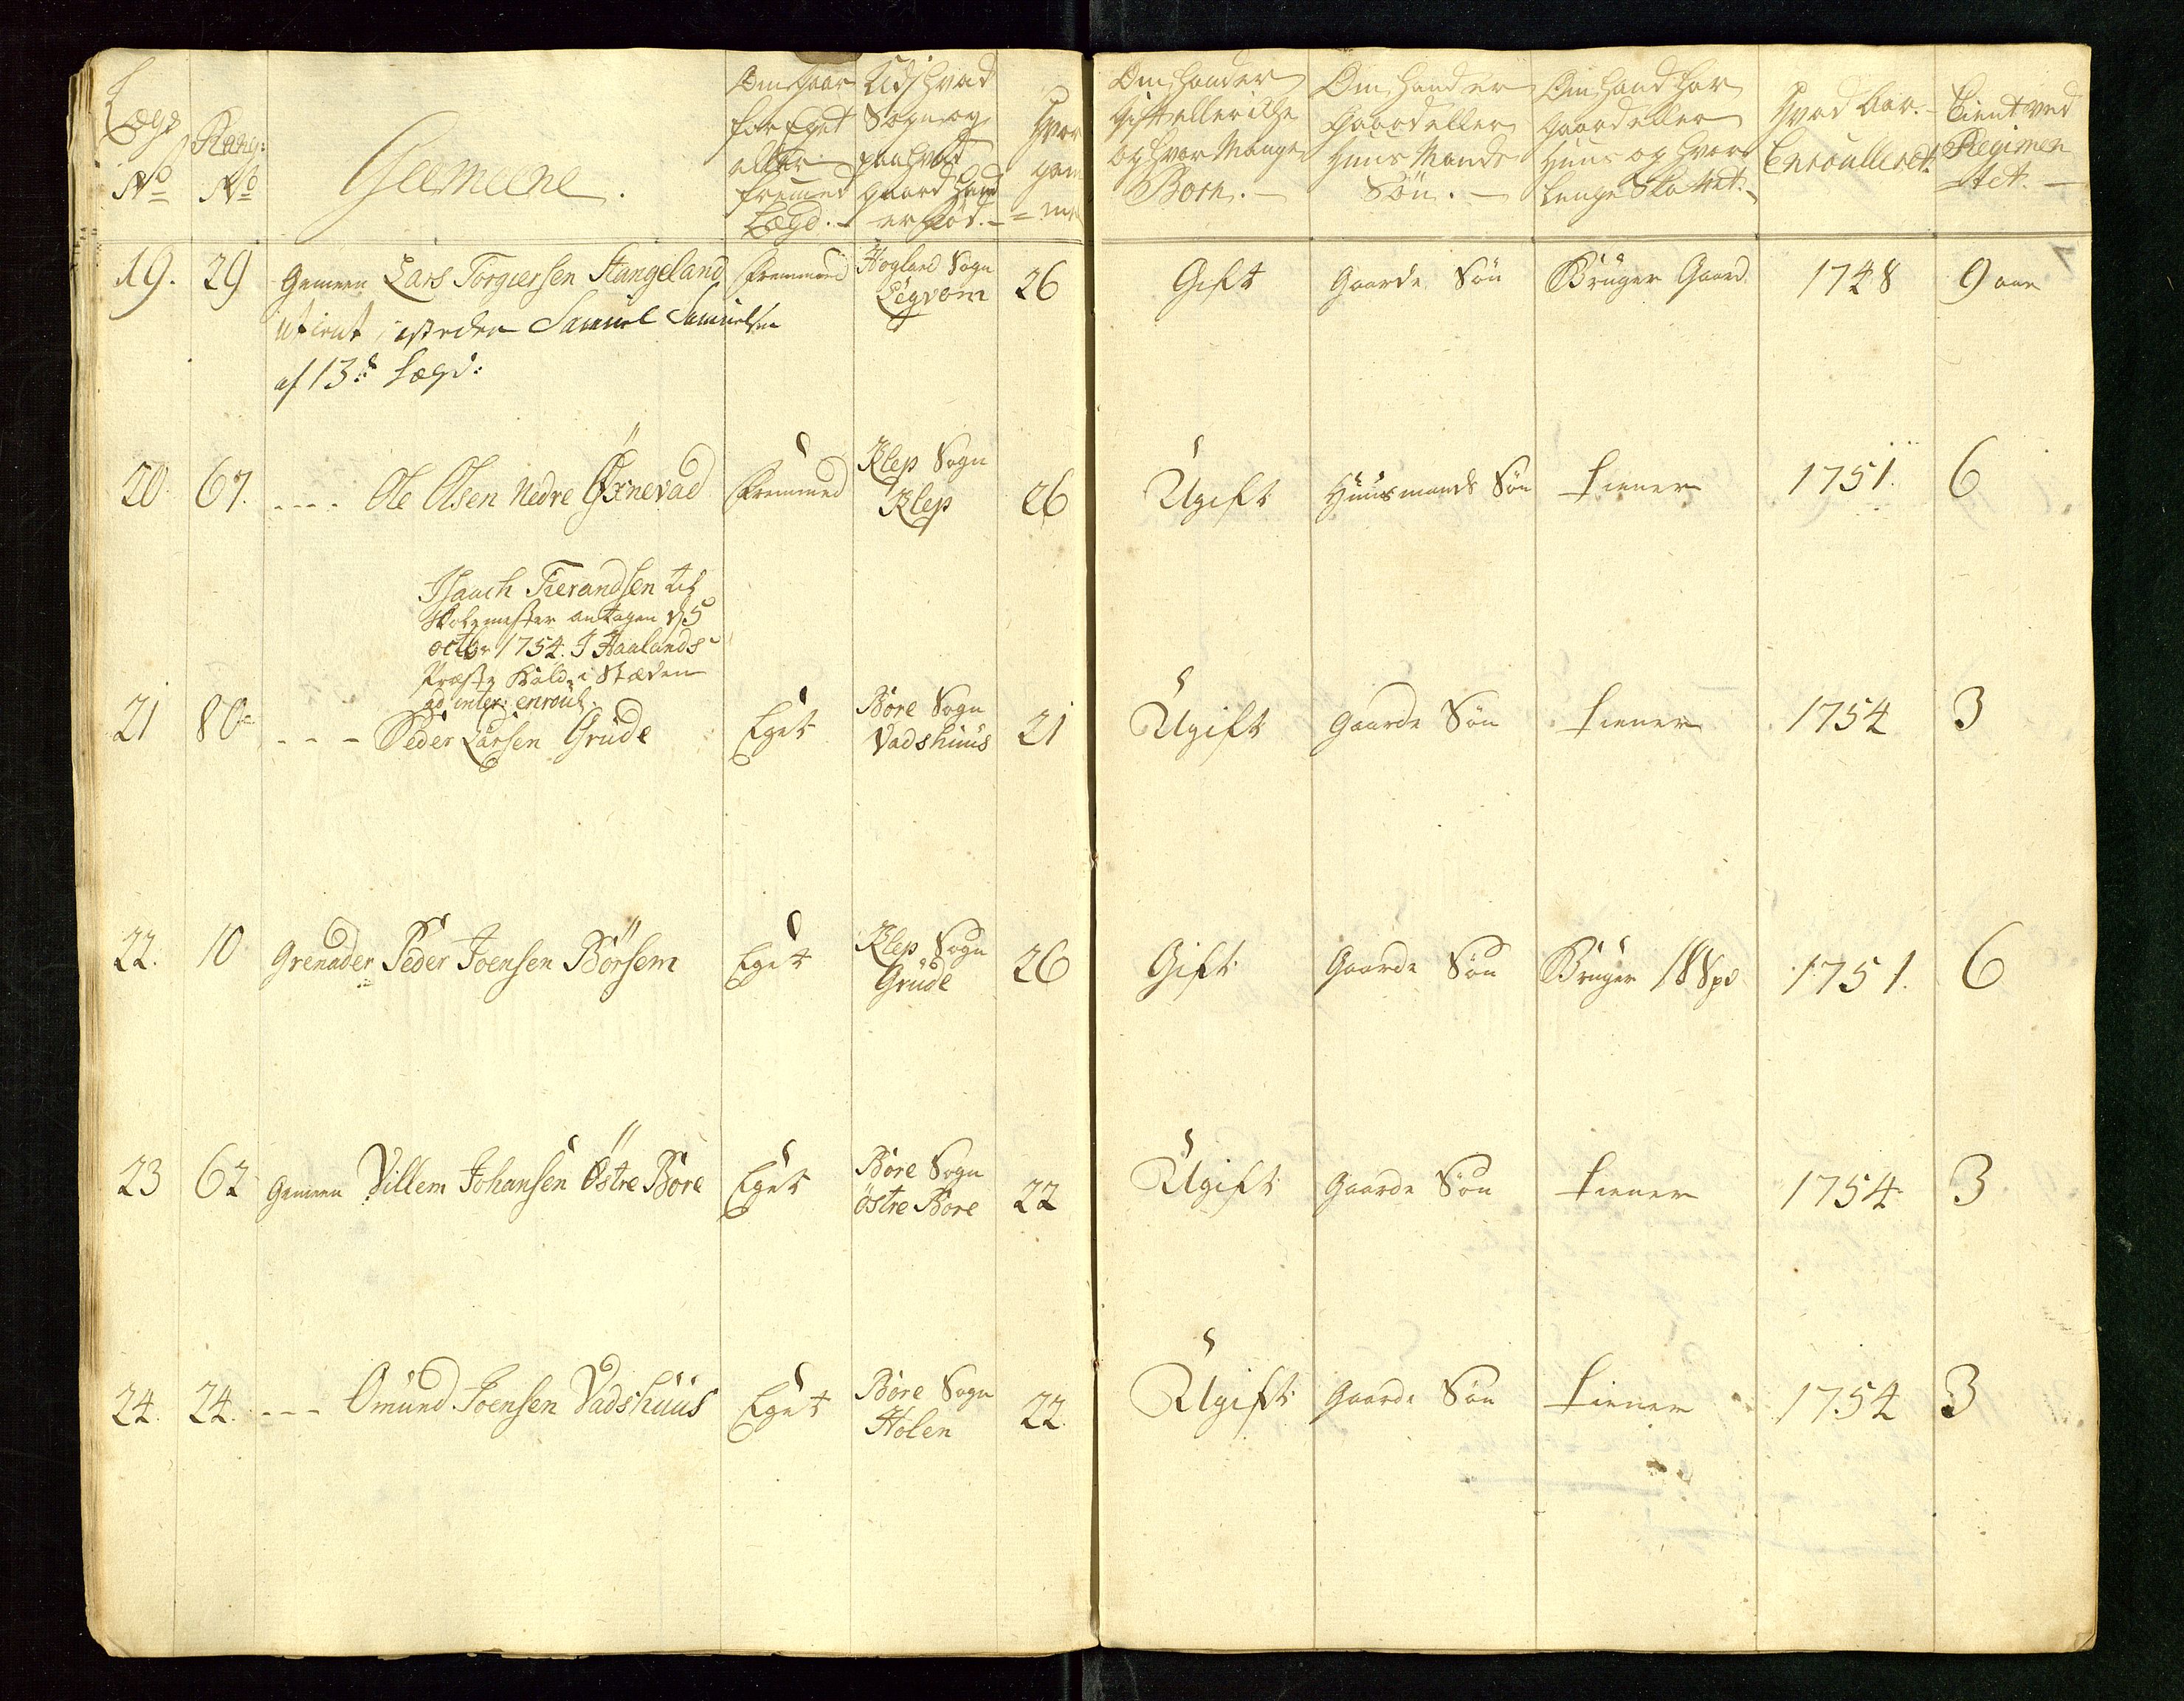 Lægd No
Rang: No
Geemeene.
Om haar for Eget eller fremmed Lægd.
Udj hvad Sogn og paa hvad gaard hand er fød.
Hvor gam= mel
Om hand er Gift eller icke og hvor Mange Børn.
Om hand er Gaard eller Huus Mands Søn.
Om hand har gaard eller Huus og hvor lenge
Hvad Aar. Enroulleret.
Tient ved Regimentet.
19. 29 Gemeen Lars Torgiersen Stangeland Fremmed Høgland Sogn Ligvom 26 Gift Gaards Søn Bruger Gaard 1748 9 aar
isteden Samuel Samuelsen
af 13de Lægd:
20. 67. ---- Ole Olsen Nedre Øxnevad Fremmed Klep Sogn Klep 26 Ugift Huusmands Søn tiener 1751. 6
Isaach Tierandsen til
Skolemester antagen d 5
octbr 1754. I Haalands
Præste Kald. i Stæden
ad inter: enroul.
21 80 --- Peder Larsen Grude Eget Bore Sogn Vadshuus 21 Ugift Gaards Søn tiener 1754 3
22. 10 Grenader Peder Joensen Börsem Eget Klep Sogn Grude 26 Gift Gaards Søn Bruger 1 8 Spd 1751. 6
23 62 Gemeen Villem Johansen Östre Bore Eget Bore Sogn östre Bore 22 Ugift Gaards Søn tiener 1754 3
24. 24. --- Omund Joensen Vadshuus Eget Bore Sogn Holen 22 Ugift Gaards Søn tiener 1754 3